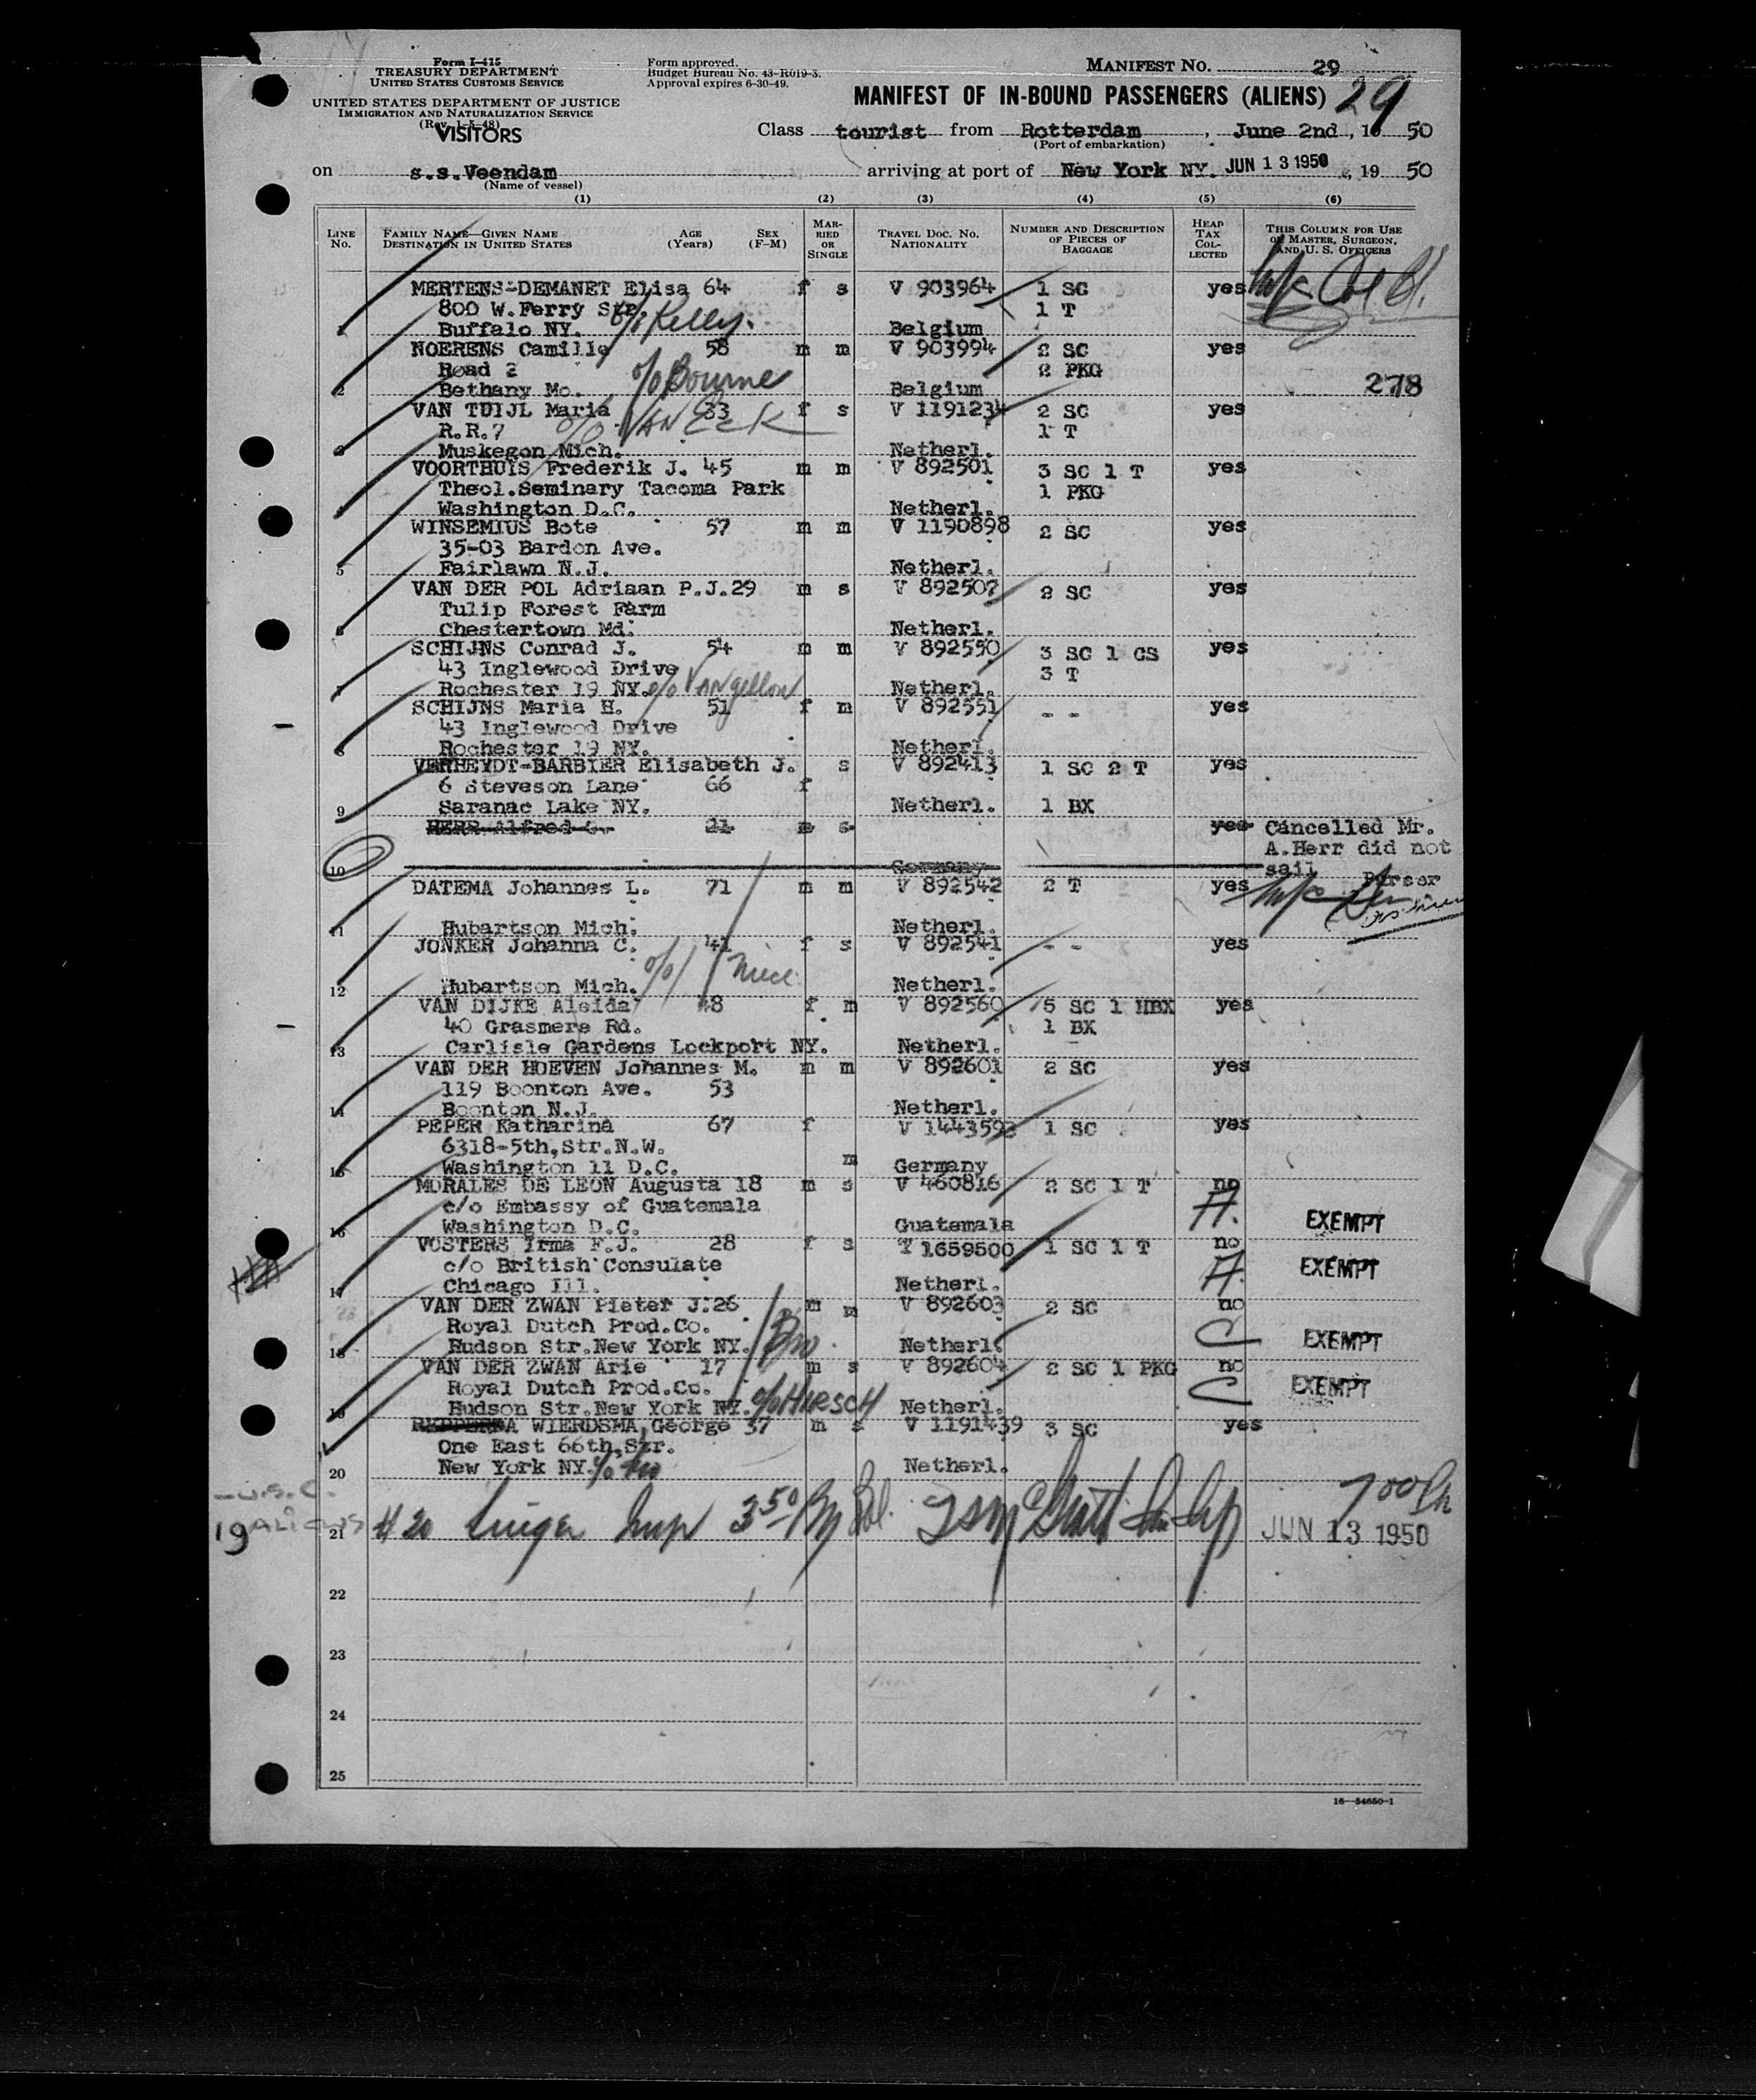 Form I-415
TREASURY DEPARTMENT
UNITED STATES CUSTOMS SERVICE
UNITED STATES DEPARTMENT OF JUSTICE
IMMIGRATION AND NATURALIZATION SERVICE
(Rev. 1-5-48)
VISITORS
Form approved.
Budget Bureau No. 43-R019-3.
Approval expires 6-30-49.
MANIFEST NO. 29
MANIFEST OF IN-BOUND PASSENGERS (ALIENS) 29
Class tourist from Rotterdam, June 2nd, 19 50
(Port of embarkation)
on s.s.Veendam arriving at port of New York NY. JUN 13 1950, 19 50
(Name of vessel)
(1) (2) (3) (4) (5) (6)
LINE NO. FAMILY NAME—GIVEN NAME DESTINATION IN UNITED STATES AGE (Years) SEX (F-M) MARRIED OR SINGLE TRAVEL DOC. NO. NATIONALITY NUMBER AND DESCRIPTION OF PIECES OF BAGGAGE HEAD TAX COLLECTED THIS COLUMN FOR USE OF MASTER, SURGEON, AND U. S. OFFICERS
MERTENS-DEMANET Elisa 64 f s V 903964 1 SC yes
800 W.Ferry Str. 1 T
1 Buffalo NY. c/o Kelly. Belgium
NOERENS Camille 58 m m V 903994 2 SC yes
Road 2 2 PKG
2 Bethany Mo. c/o Bourne Belgium 278
VAN TUIJL Maria 33 f s V 1191234 2 SC yes
R.R.7 c/o VAN Eck 1 T
3 Muskegon Mich. Netherl.
VOORTHUIS Frederik J. 45 m m V 892501 3 SC 1 T yes
Theol.Seminary Tacoma Park 1 PKG
4 Washington D.C. Netherl.
WINSEMIUS Bote 57 m m V 1190898 2 SC yes
35-03 Bardon Ave.
5 Fairlawn N.J. Netherl.
VAN DER POL Adriaan P.J.29 m s V 892507 2 SC yes
Tulip Forest Farm
6 Chestertown Md. Netherl.
SCHIJNS Conrad J. 54 m m V 892550 3 SC 1 CS yes
43 Inglewood Drive 3 T
7 Rochester 19 NY. c/o Netherl.
SCHIJNS Maria H. 51 f m V 892551 - - yes
43 Inglewood Drive
8 Rochester 19 NY. Netherl.
VERHEYDT-BARBIER Elisabeth J. s V 892413 1 SC 2 T yes
6 Steveson Lane 66 f
9 Saranac Lake NY. Netherl. 1 BX
HERR Alfred 21 m s yes Cancelled Mr.
A.Herr did not
10 Germany sail
Purser
DATEMA Johannes L. 71 m m V 892542 2 T yes
11 Hubartson Mich. Netherl.
JONKER Johanna C. 41 f s V 892541 - - yes
12 Hubartson Mich. c/o Niece Netherl.
VAN DIJKE Aleida 48 f m V 892560 5 SC 1 HBX yes
40 Grasmere Rd. 1 BX
13 Carlisle Gardens Lockport NY. Netherl.
VAN DER HOEVEN Johannes M. m m V 892601 2 SC yes
119 Boonton Ave. 53
14 Boonton N.J. Netherl.
PEPER Katharina 67 f V 1443593 1 SC yes
6318-5th,Str.N.W.
15 Washington 11 D.C. m Germany
MORALES DE LEON Augusta 18 m s V 460816 2 SC 1 T no
c/o Embassy of Guatemala A.
16 Washington D.C. Guatemala EXEMPT
VOSTERS Irma F.J. 28 f s T 1659500 1 SC 1 T no
c/o British Consulate A. EXEMPT
17 Chicago Ill. Netherl.
VAN DER ZWAN Pieter J.26 m m V 892603 2 SC no
Royal Dutch Prod.Co. C
18 Hudson Str.New York NY. Bro. Netherl. EXEMPT
VAN DER ZWAN Arie 17 m s V 892604 2 SC 1 PKG no
Royal Dutch Prod.Co. C EXEMPT
19 Hudson Str.New York NY. c/o HIRSCH Netherl.
WIERDSMA,George 37 m s V 1191439 3 SC yes
One East 66th,Str.
20 New York NY. c/o Netherl.
- U.S.C.
19 ALIENS
21 # 20 3 50 JUN 13 1950
22
23
24
25
16—54650-1